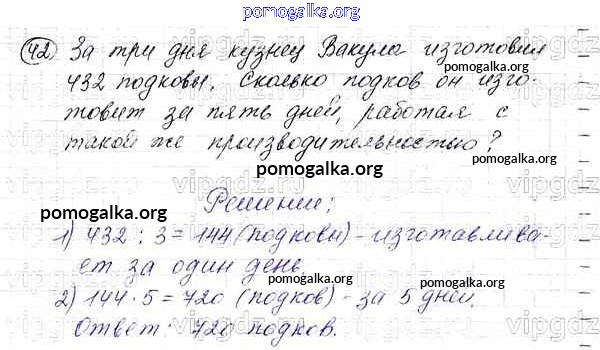 pomogalka.org
42 За три дня кузнец Вакула изготовил
432 подковы. Сколько подков он изго-
товит за пять дней, работая с
такой же производительностью?
pomogalka.org
pomogalka.org
pomogalka.org
vipgdz.ru
pomogalka.org
Решение:
1) 432 : 3 = 144 (подковы) - изготавлива-
ет за один день.
pomogalka.org
pomogalka.org
2) 144 · 5 = 720 (подков) - за 5 дней.
Ответ: 720 подков.